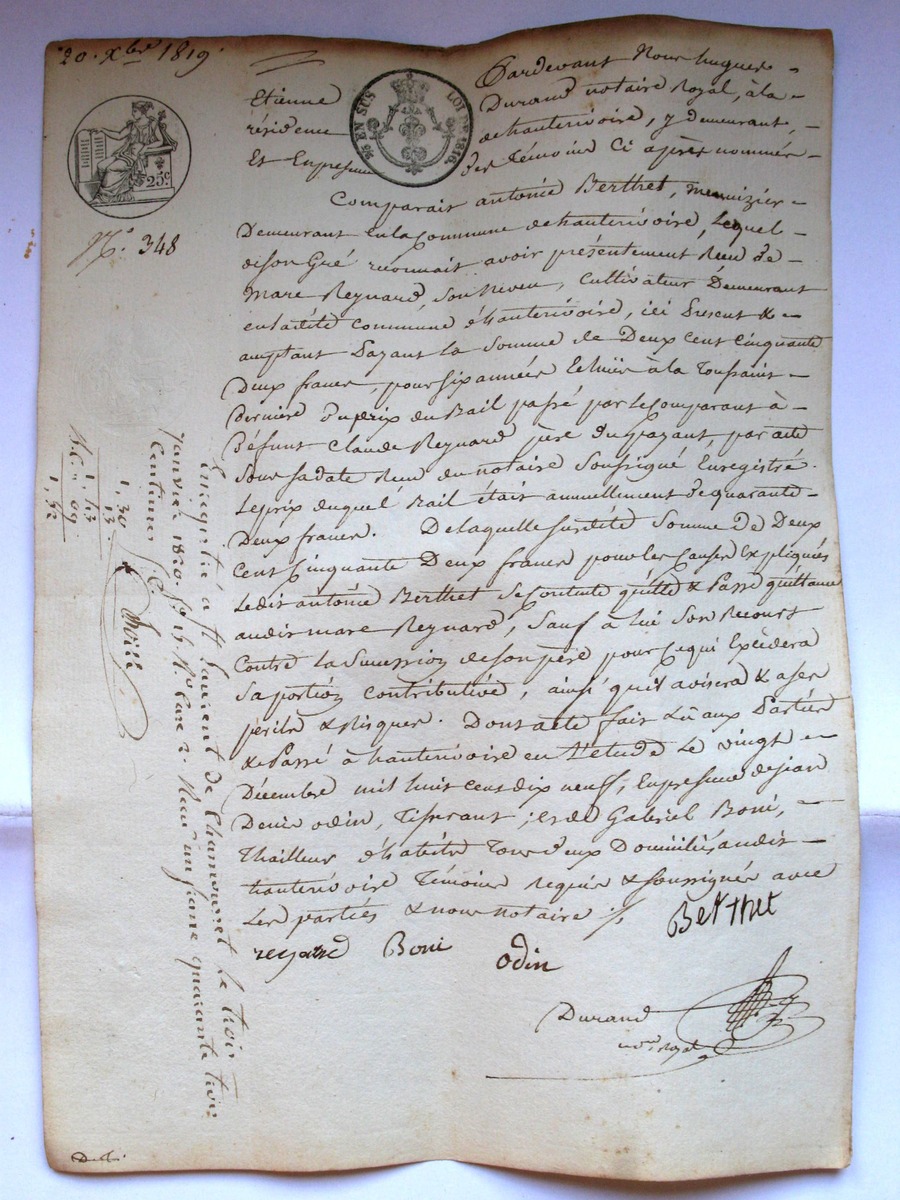 20. Xbre 1819.
25c
25 EN SUS
LOI DE 1816.
No. 348
Pardevant Nous hugues
Etienne Durand notaire Royal, à la
résidence de hauterivoire, y demeurant,
Et En presence des Témoins Ci après nommés
Comparait antoine Berthet, menuizier
Demeurant En la Commune de hauterivoire, Lequel
de son Gré reconnait avoir présentement Reçu de
Marc Reynard, Son Neveu, Cultivateur Demeurant
en ladite Commune d'hauterivoire, ici Present &
acceptant Payant la Somme de Deux Cent Cinquante
Deux francs, pour Six années Echües à la Toussaint
Dernière du prix du Bail passé par le Comparant à
Défunt Claude Reynard père du payant, par acte
Sous sa date Reçu du notaire Soussigné Enregistré.
Le prix duquel Bail était annuellement de quarante
Deux francs. De laquelle susdite Somme de Deux
Cent Cinquante Deux francs pour les Causes Expliquées
Ledit antoine Berthet Se Contente quitte & Passe quittance
audit marc Reynard, Sauf à lui Son Recours
Contre la Succession de son père pour Ce qui Excédera
Sa portion Contributive, ainsi qu'il avisera & a ses
perils & Risques. Dont acte fait & Lû aux Parties
& Passé à hauterivoire en L'etude Le vingt
Décembre mil huit Cent dix neuf, En presence de jean
Denis odin, Tisserant, et de Gabriel Boni,
Thailleur d'habits Tous deux Domiciliés audit
hauterivoire Témoins Requis & Soussignés avec
Les parties & nous notaire
Berthet
reynard Boni odin
Durand
nore royal
Enregistré à St Laurent de Chamousset le trois
janvier 1820. fo 15 Ro Case 2. Reçu un franc quarante trois
Centimes
1,30
13
1,43
09
1,52